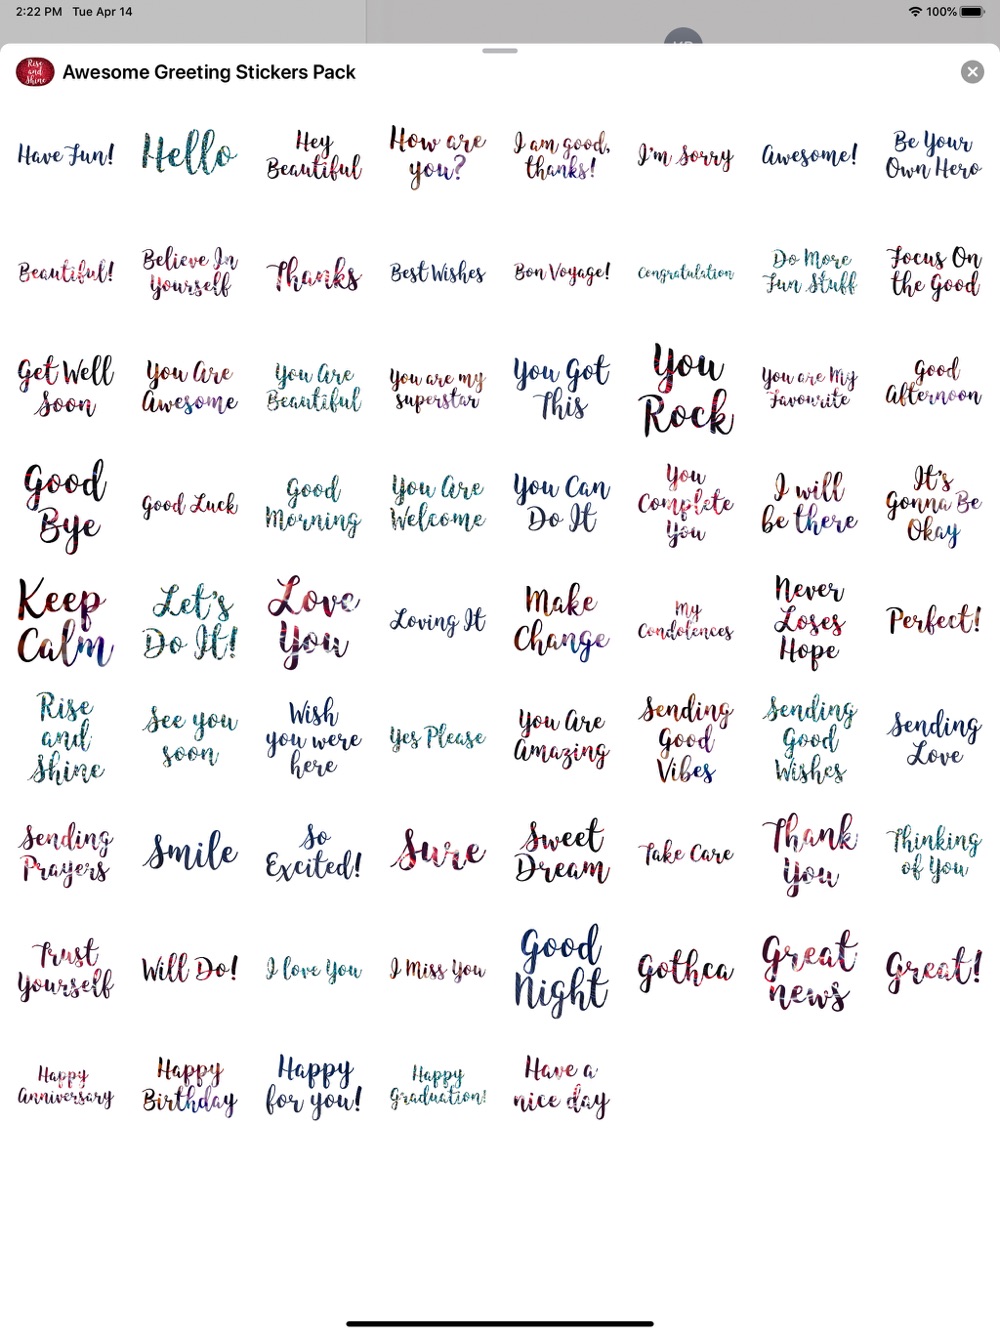 2:22 PM Tue Apr 14
100%
Rise
and
Shine
Awesome Greeting Stickers Pack
Have Fun!
Hello
Hey
Beautiful
How are
you?
I am good,
thanks!
I'm Sorry
Awesome!
Be Your
Own Hero
Beautiful!
Believe In
Yourself
Thanks
Best Wishes
Bon Voyage!
Congratulation
Do More
Fun Stuff
Focus On
the Good
Get Well
Soon
You Are
Awesome
You Are
Beautiful
You are my
superstar
You Got
This
You
Rock
You are My
Favourite
Good
Afternoon
Good
Bye
Good Luck
Good
Morning
You Are
Welcome
You Can
Do It
You
Complete
You
I will
be there
It's
Gonna Be
Okay
Keep
Calm
Let's
Do It!
Love
You
Loving It
Make
Change
My
Condolences
Never
Loses
Hope
Perfect!
Rise
and
Shine
See you
soon
Wish
you were
here
Yes Please
You Are
Amazing
Sending
Good
Vibes
Sending
Good
Wishes
Sending
Love
Sending
Prayers
Smile
So
Excited!
Sure
Sweet
Dream
Take Care
Thank
You
Thinking
of You
Trust
Yourself
Will Do!
I love You
I Miss You
Good
Night
Gothca
Great
news
Great!
Happy
Anniversary
Happy
Birthday
Happy
for you!
Happy
Graduation!
Have a
nice day